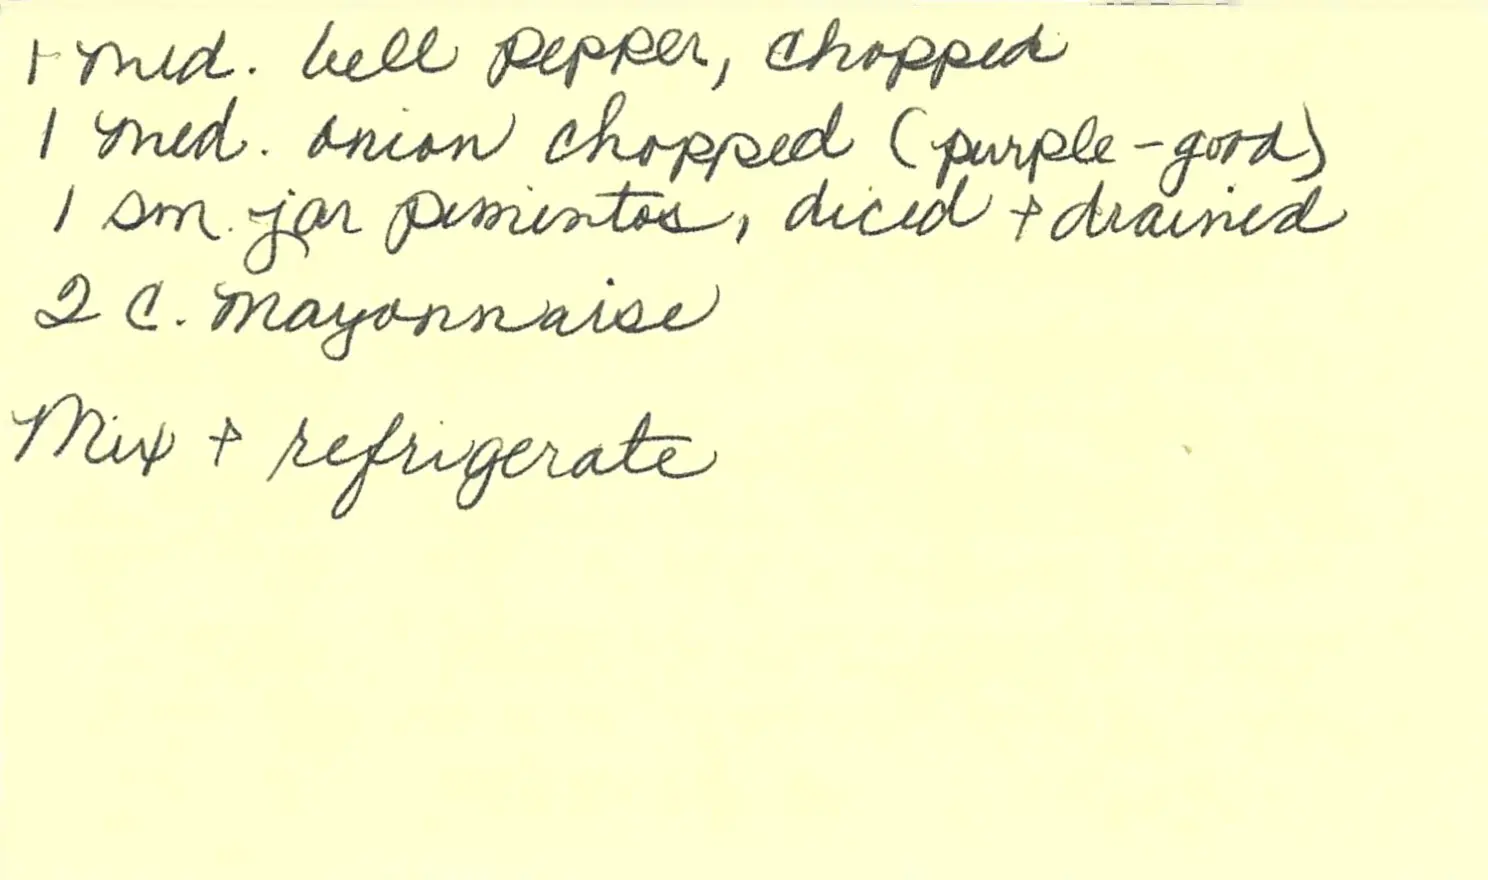 1 med. bell pepper, chopped
1 med. onion chopped (purple - good)
1 sm. jar pimentos, diced + drained
2 C. mayonnaise
Mix + refrigerate